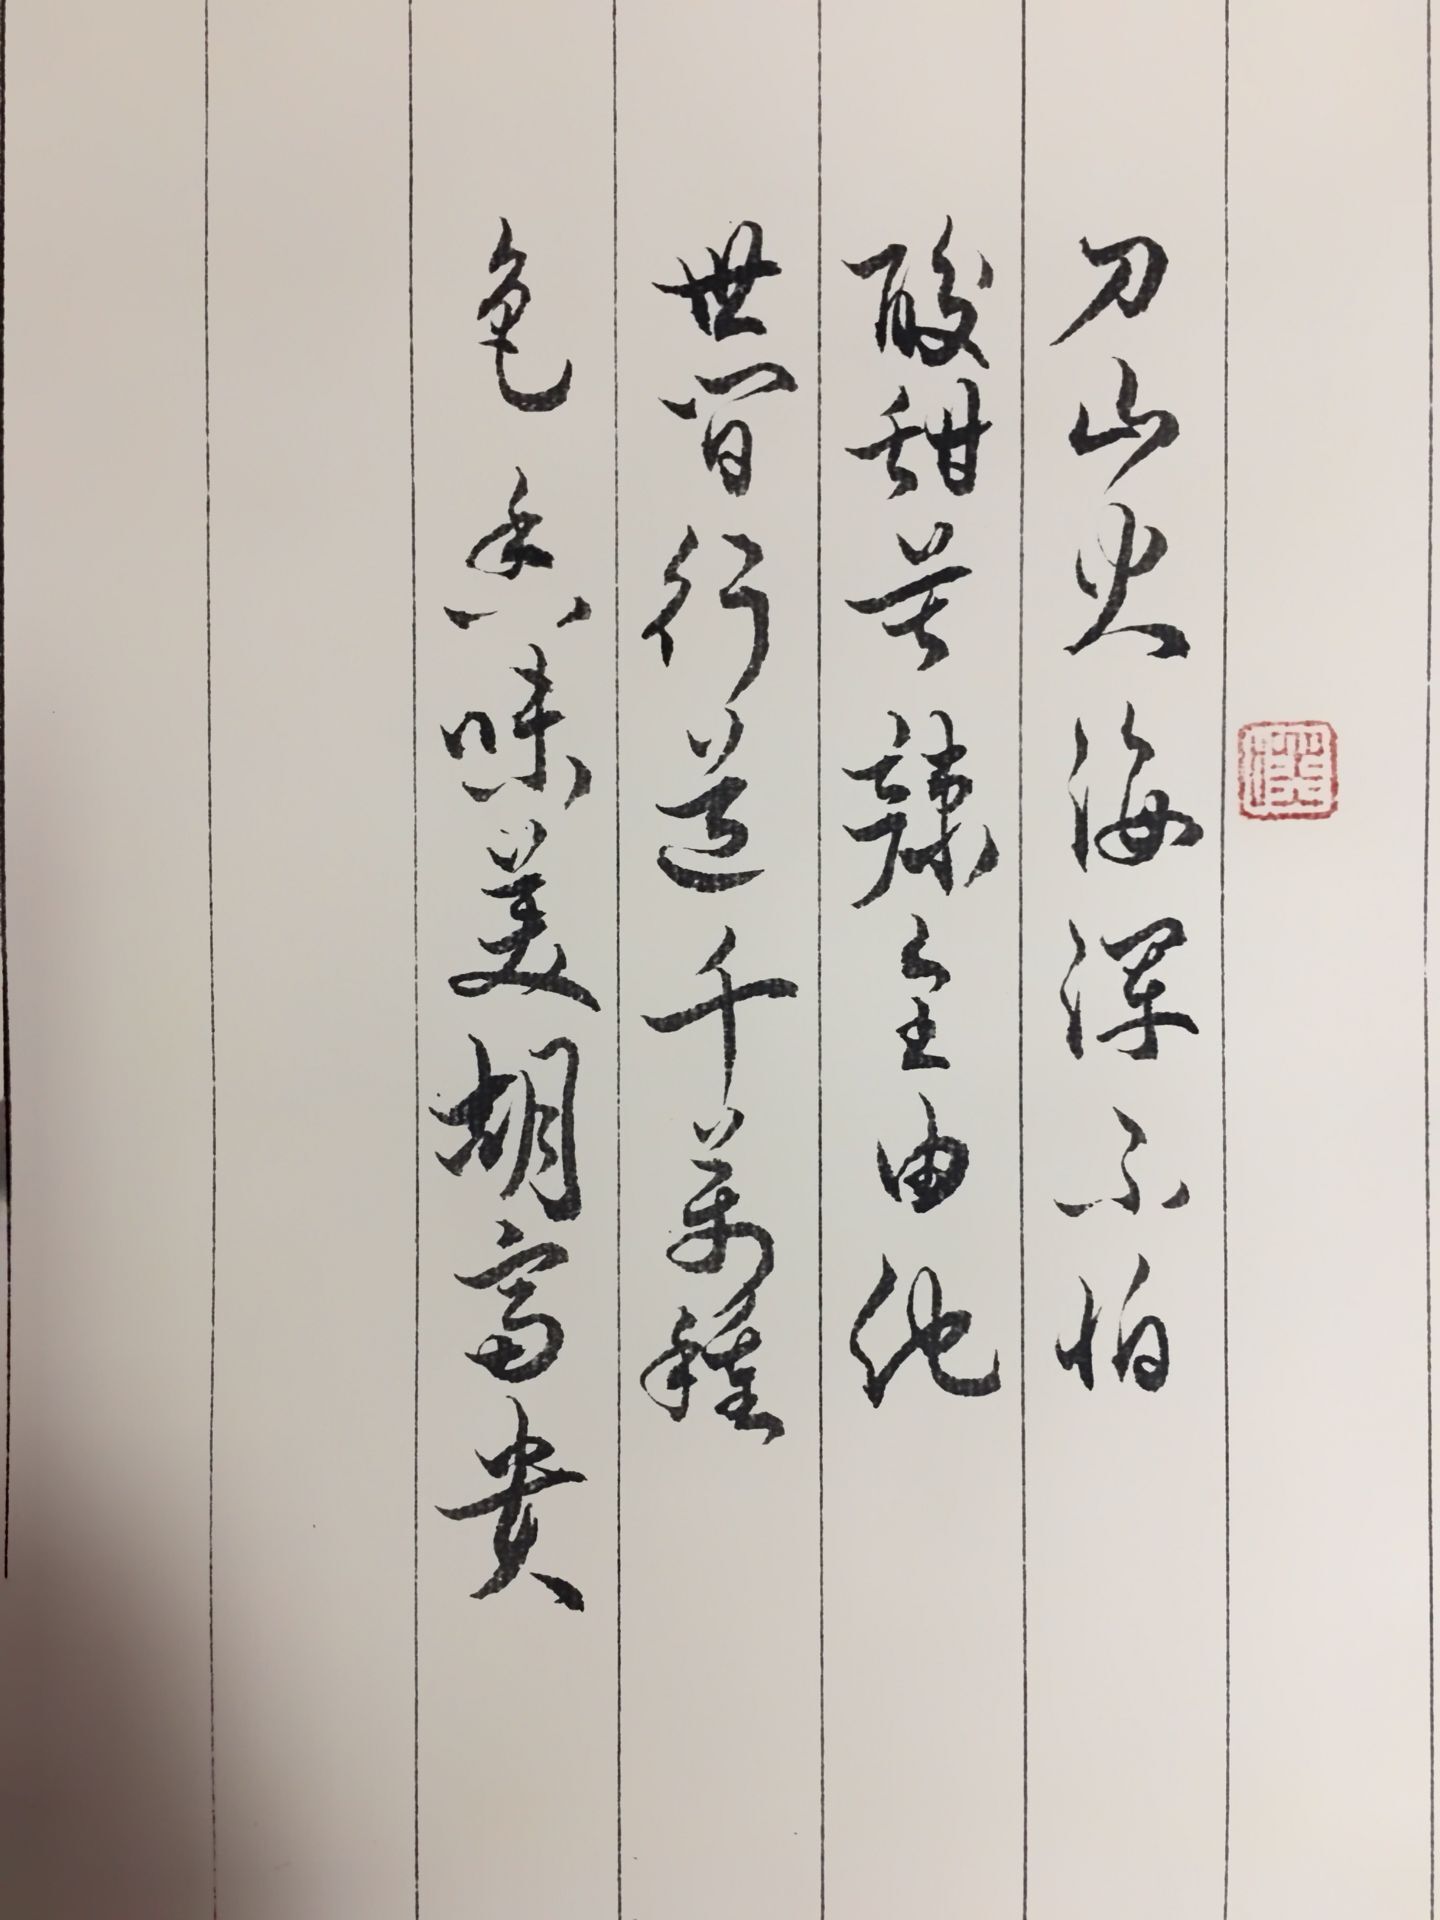 刀山火海浑不怕
酸甜苦辣全由他
世间行道千万种
色香味美胡富贵